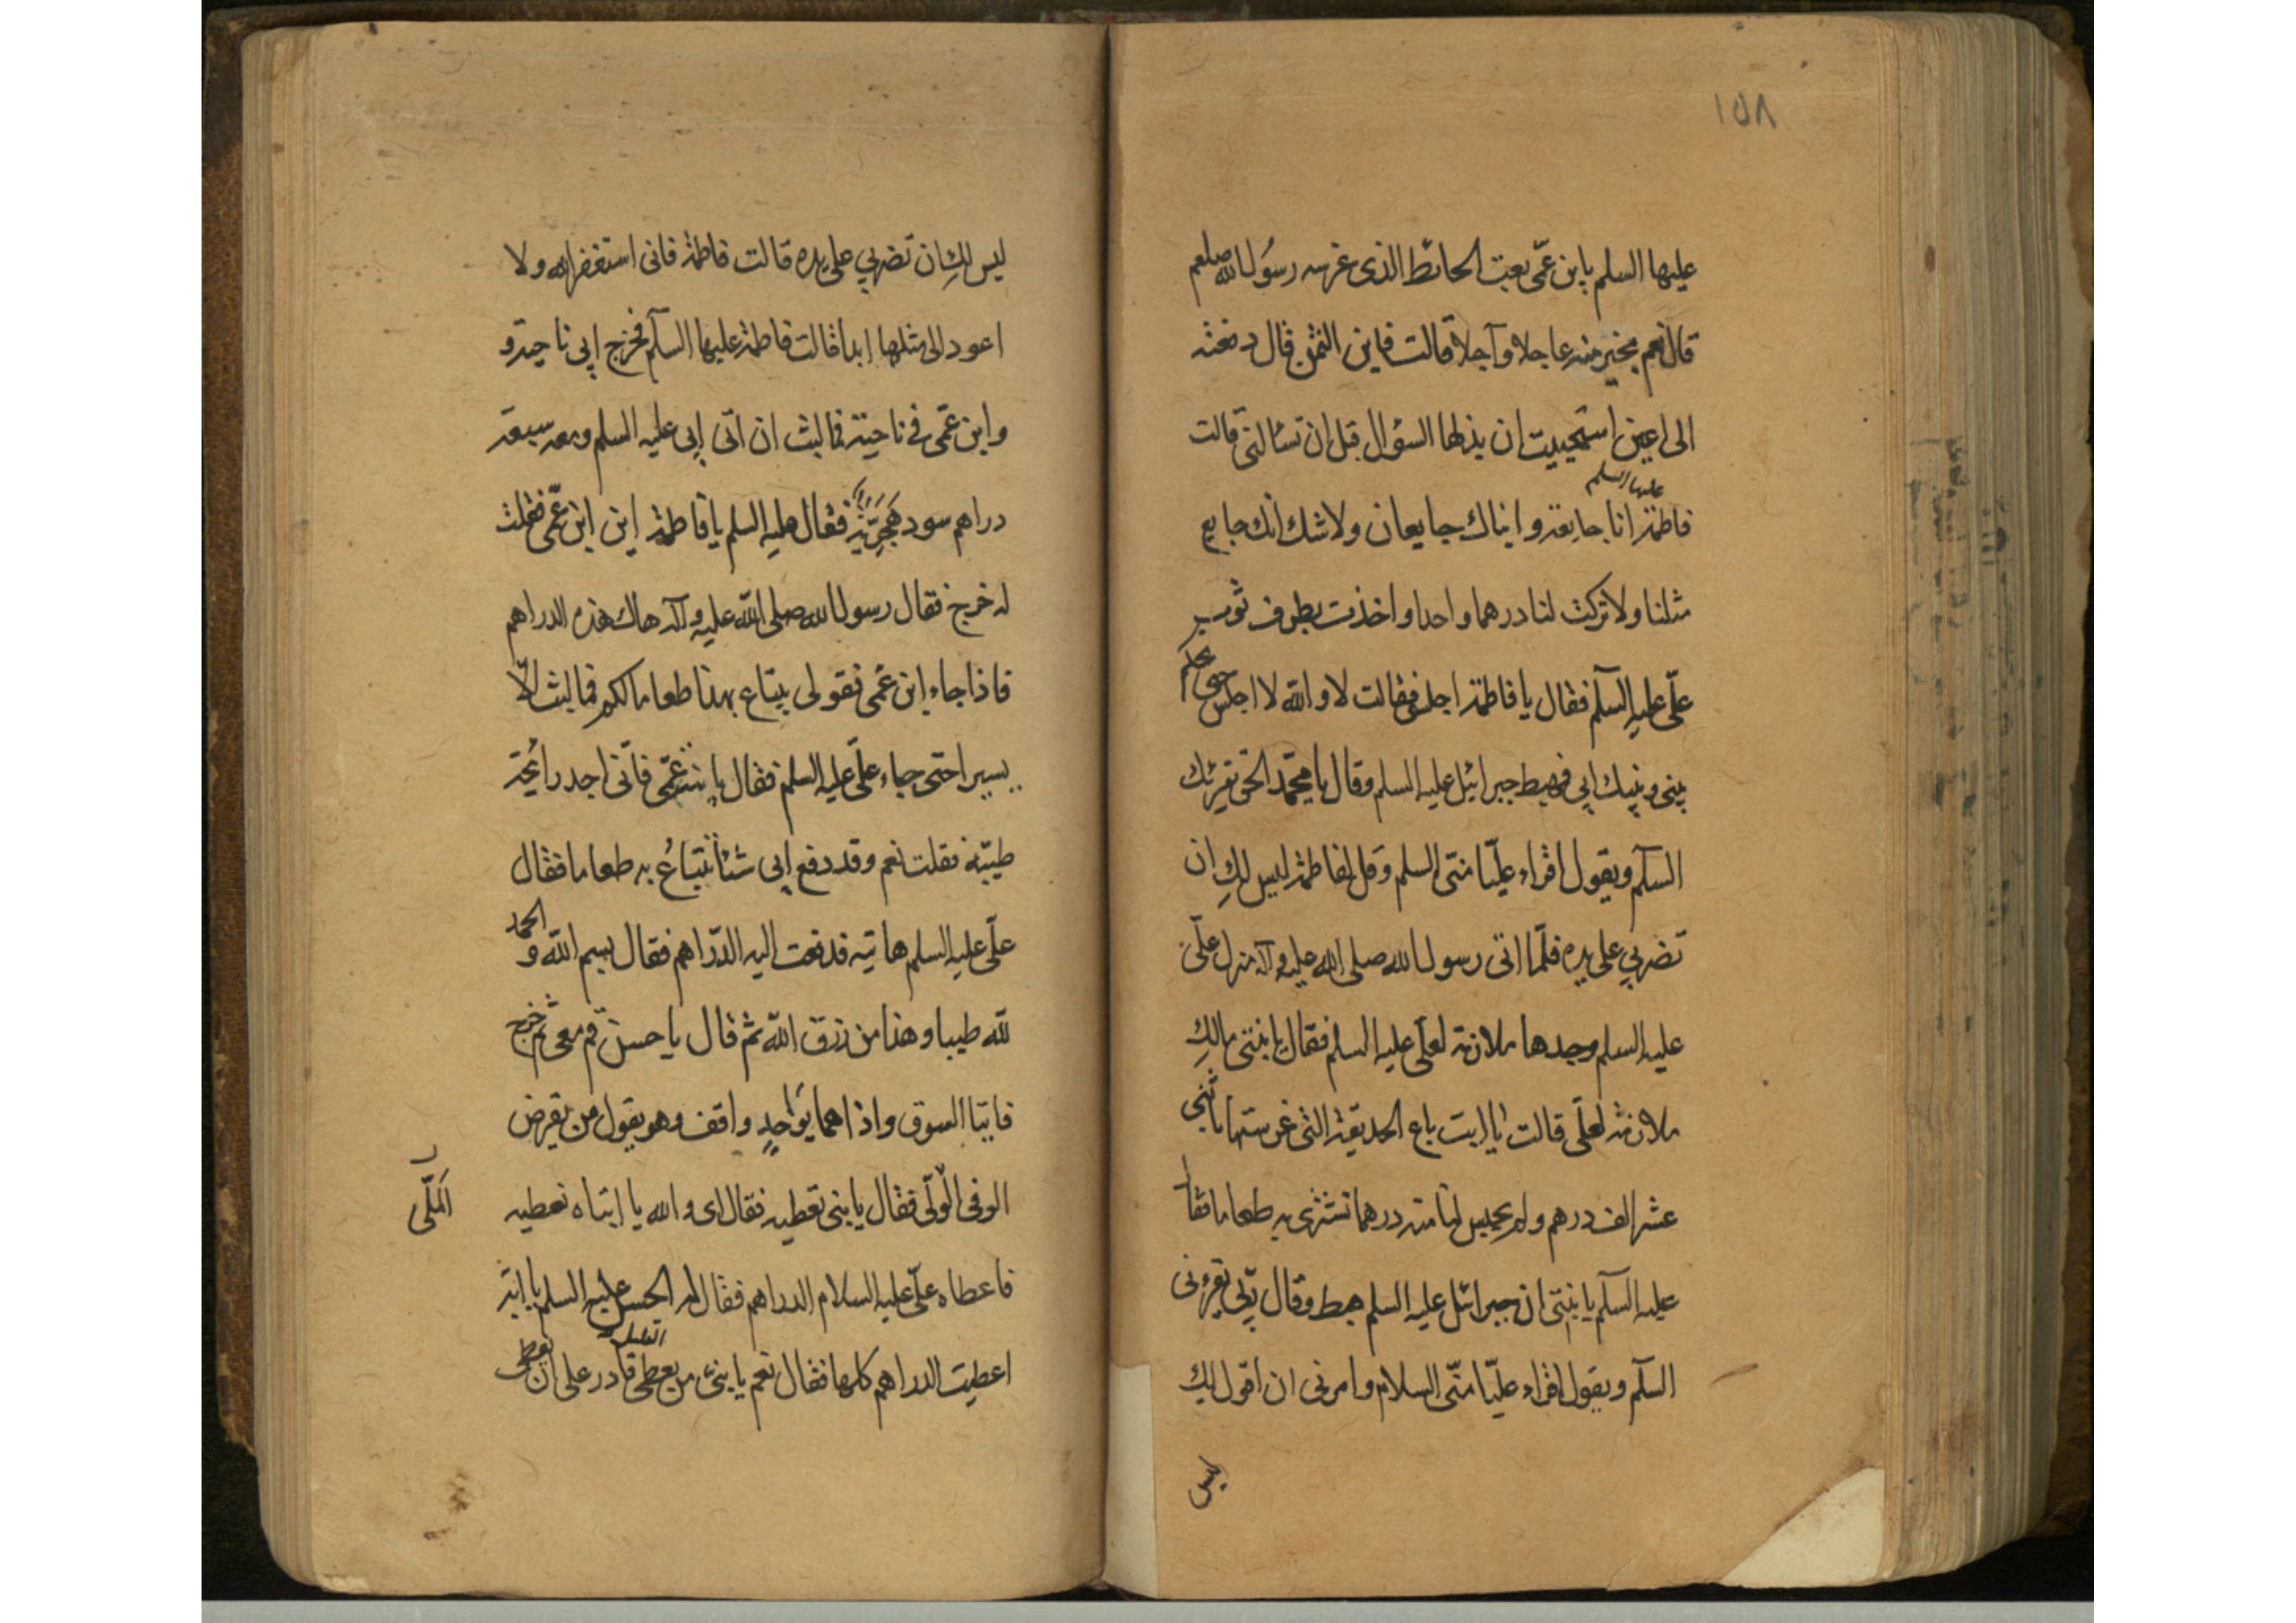 ١٥٨
عليها السلم يابن عمّى بعت الحائط الذى غرسه رسول الله صلعم
قال نعم بخير منه عاجلا وآجلا قالت فاين الثمن قال دفعته
الى اعين استحييت ان يذلها السؤال قبل ان تسالنى قالت
عليها السلم
فاطمة انا جايعة وابناك جايعان ولا شك انك جايع
مثلنا ولا تركت لنا درهما واحدا واخذت بطرف ثوب
علىّ عليه السلم فقال يا فاطمة اجلسى فقالت لا والله لا اجلس حتى يحكم
بينى وبينك ابى فهبط جبرائيل عليه السلم وقال يا محمّد الحق يقرئك
السلم ويقول اقراء عليّا منّى السلم وقل لفاطمة ليس لكِ ان
تضربي على يده فلمّا اتى رسول الله صلى الله عليه وآله منزل علىّ
عليه السلم وجدها ملازمة لعلّى عليه السلم فقال يا بنتى مالكِ
ملازمة لعلّى قالت يا ابت باع الحديقة التى غرستها باثنى
عشر الف درهم ولم يحبس لنا منه درهما نشترى به طعاما فقال
عليه السلم يا بنتى ان جبرائيل عليه السلم هبط وقال ربّى يقرءنى
السلم ويقول اقراء عليّا منّى السلام وامرنى ان اقول لك
ليس
ليس لكِ ان تضربي على يده قالت فاطمة فانى استغفر الله ولا
اعود الى مثلها ابدا قالت فاطمة عليها السلم فخرج ابى ناحية و
وابن عمّى فى ناحية فما لبث ان اتى ابى عليه السلم ومعه سبعة
دراهم سود هَجَرِيَّة فقال عليه السلم يا فاطمة اين ابن عمّى فقلت
له خرج فقال رسول الله صلى الله عليه وآله هاك هذه الدراهم
فاذا جاء ابن عمى فقولى يبتاع بهذا طعاما لكم فما لبث الّا
يسيرا حتى جاء علىّ عليه السلم فقال يا بنت عمّى فانّى اجد رائحة
طيّبة فقلت نعم وقد دفع ابى شئا نبتاعُ به طعاما فقال
علّى عليه السلم هاتيه فدفعت اليه الدّراهم فقال بسم الله والحمد
لله طيبا وهذا من رزق الله ثم قال يا حسن قم معى ثم خرج
فاتيا السوق واذا هما بواحدٍ واقف وهو يقول من يقرض
الوفى الولّى فقال يا بنى نعطيه فقال اى والله يا ابتاه نعطيه
المَلّى
فاعطاه علّى عليه السلام الدراهم فقال له الحسن عليه السلم يا ابة
القليل
اعطيت الدراهم كلها فقال نعم يا بنىّ من يعطى قادر على ان يعطى